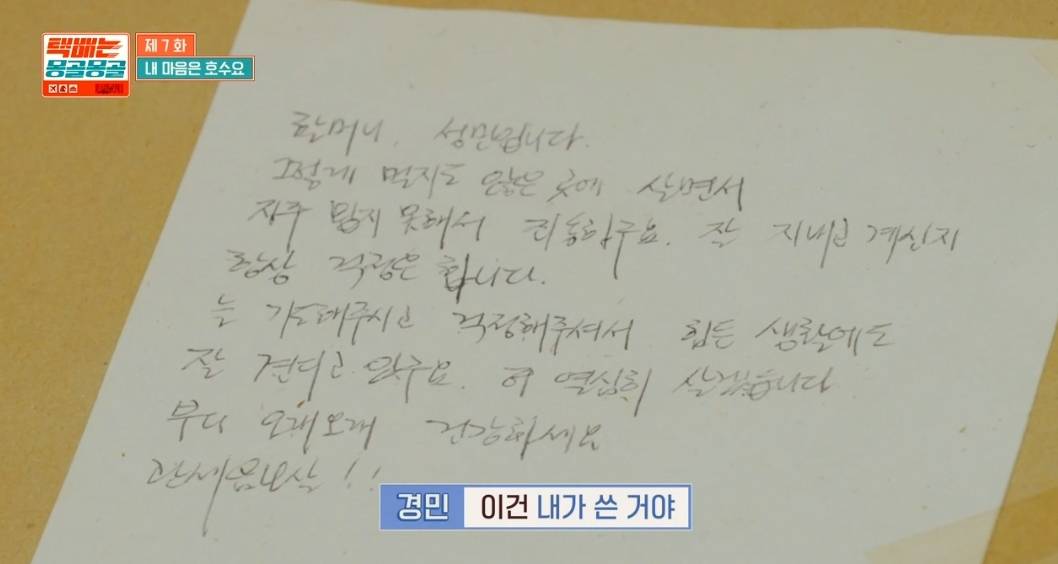 택배는
몽골몽골
제7화
내 마음은 호수요
할머니, 경민입니다.
그렇게 멀지도 않은 곳에 살면서
자주 뵙지 못해서 죄송하구요. 잘 지내고 계신지
항상 걱정은 합니다.
늘 기도해주시고 걱정해주셔서 힘든 생활에도
잘 견디고 있구요. 더 열심히 살겠습니다
부디 오래오래 건강하세요
관세음보살!!
경민 이건 내가 쓴 거야